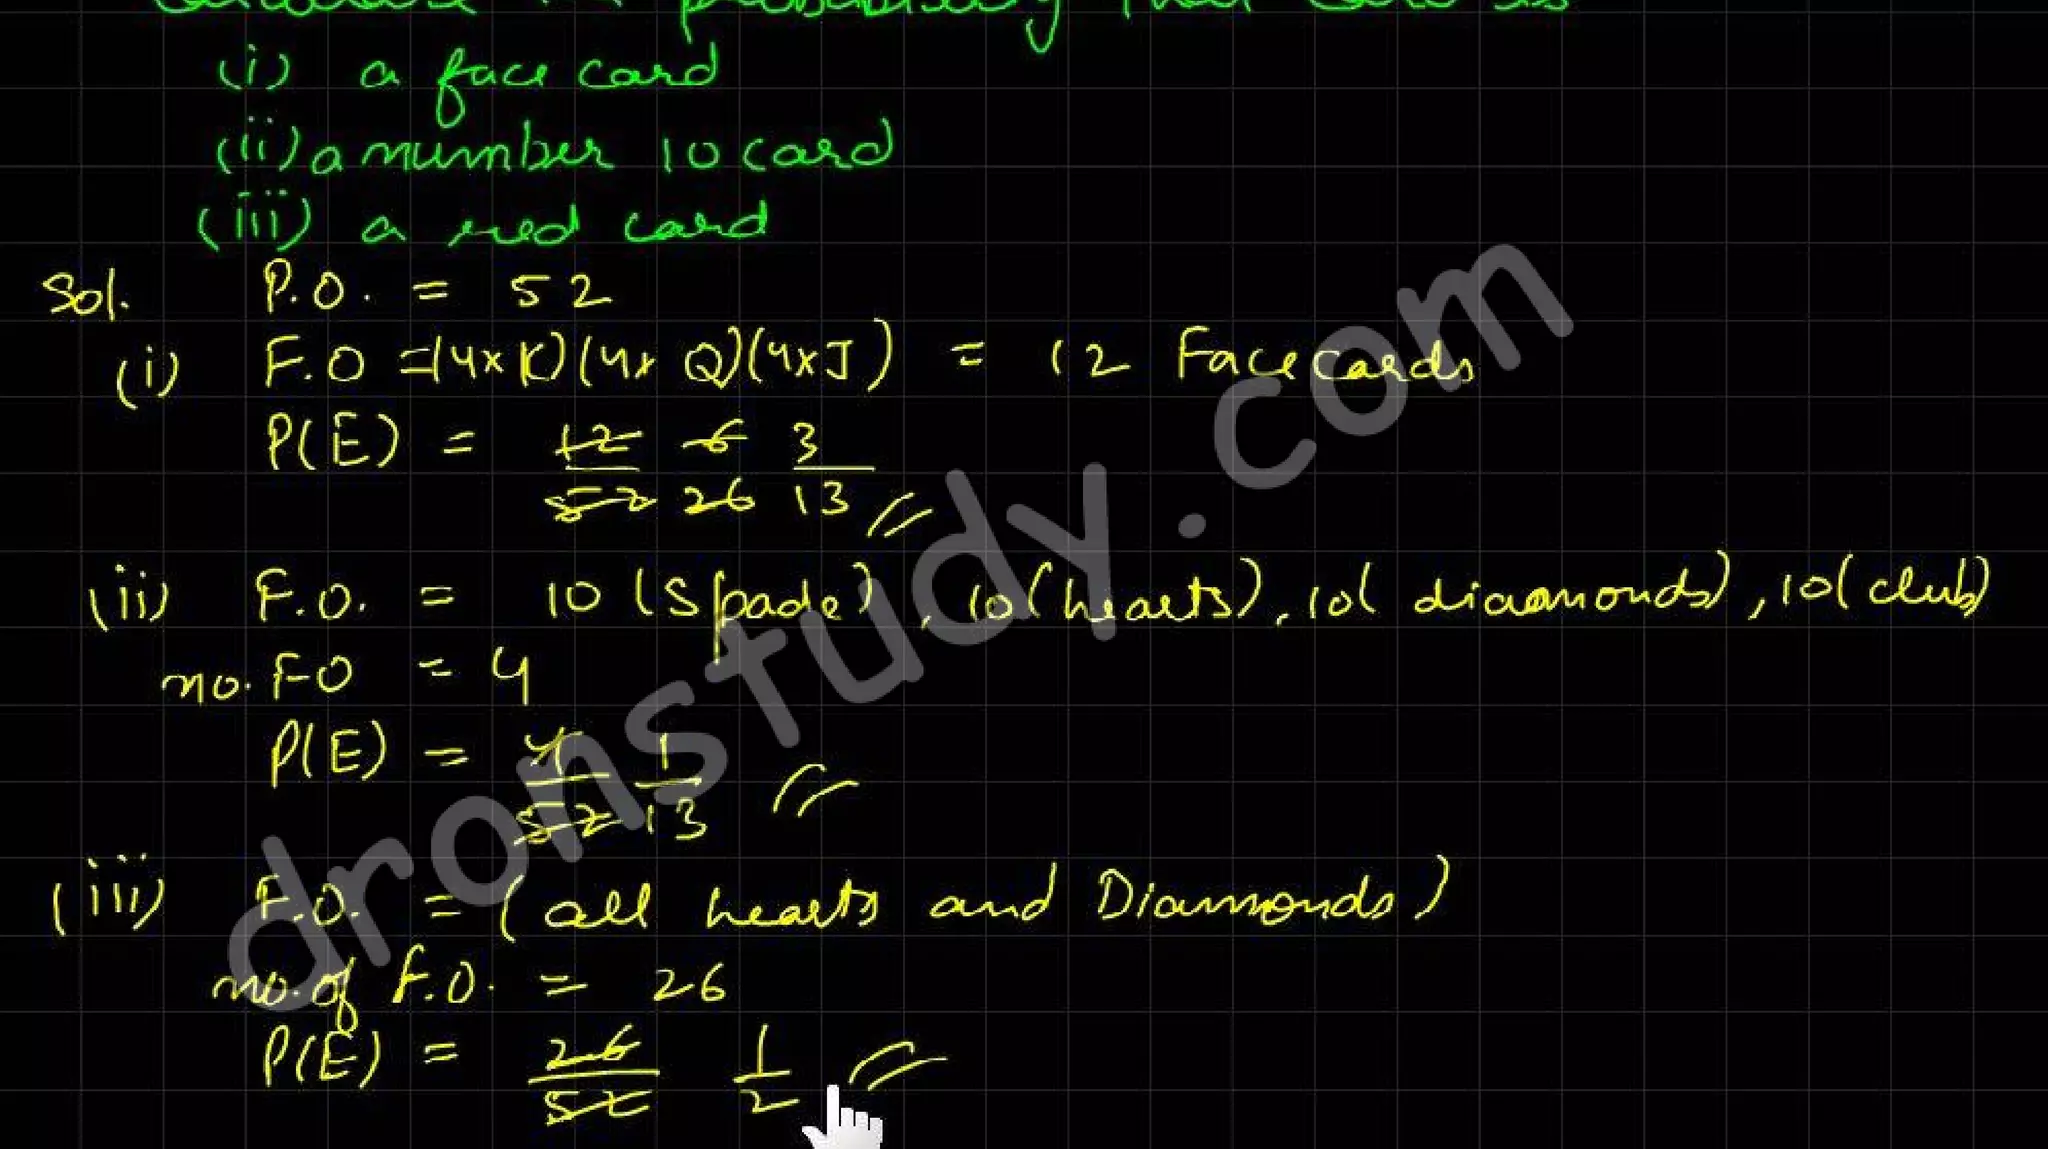 probability that card is
(i) a face card
(ii) a number 10 card
(iii) a red card
Sol. P.O. = 52
(i) F.O = (4×K)(4× Q)(4×J) = 12 Face cards
P(E) = 12/52 6/26 3/13
(ii) F.O. = 10 (Spade), 10 (hearts), 10( diamonds), 10( club)
no. FO = 4
P(E) = 4/52 1/13
(iii) F.O. = ( all hearts and Diamonds )
no. of F.O. = 26
P(E) = 26/52 1/2
dronstudy.com